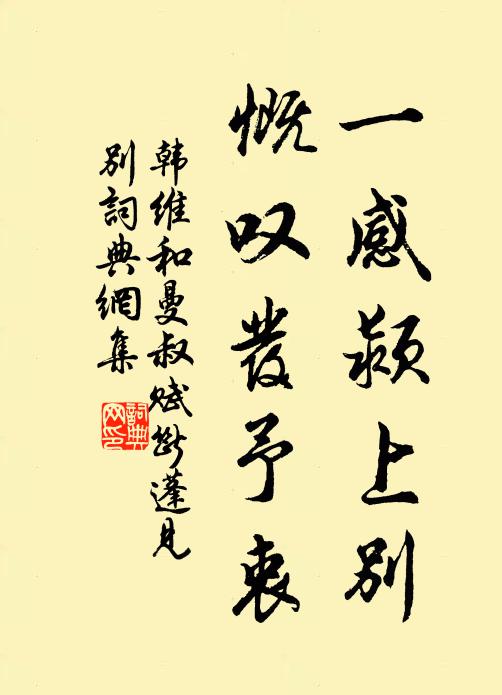 一感颍上別
慨叹發予衷
韩维和曼叔赋断蓬见
別詞典網集
詞典网印